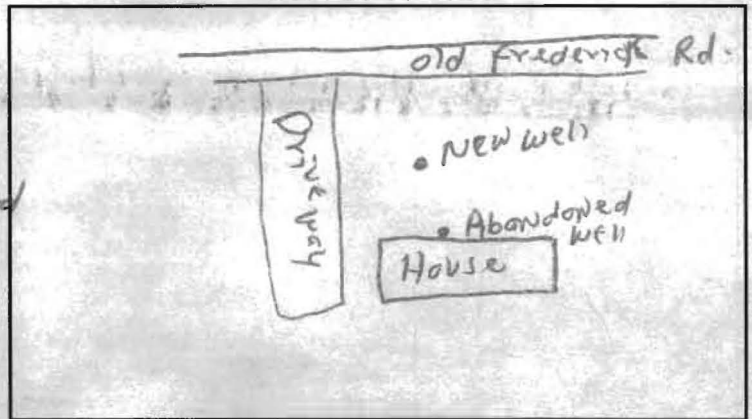 old Frederick Rd.
Driveway
New well
Abandoned
well
House